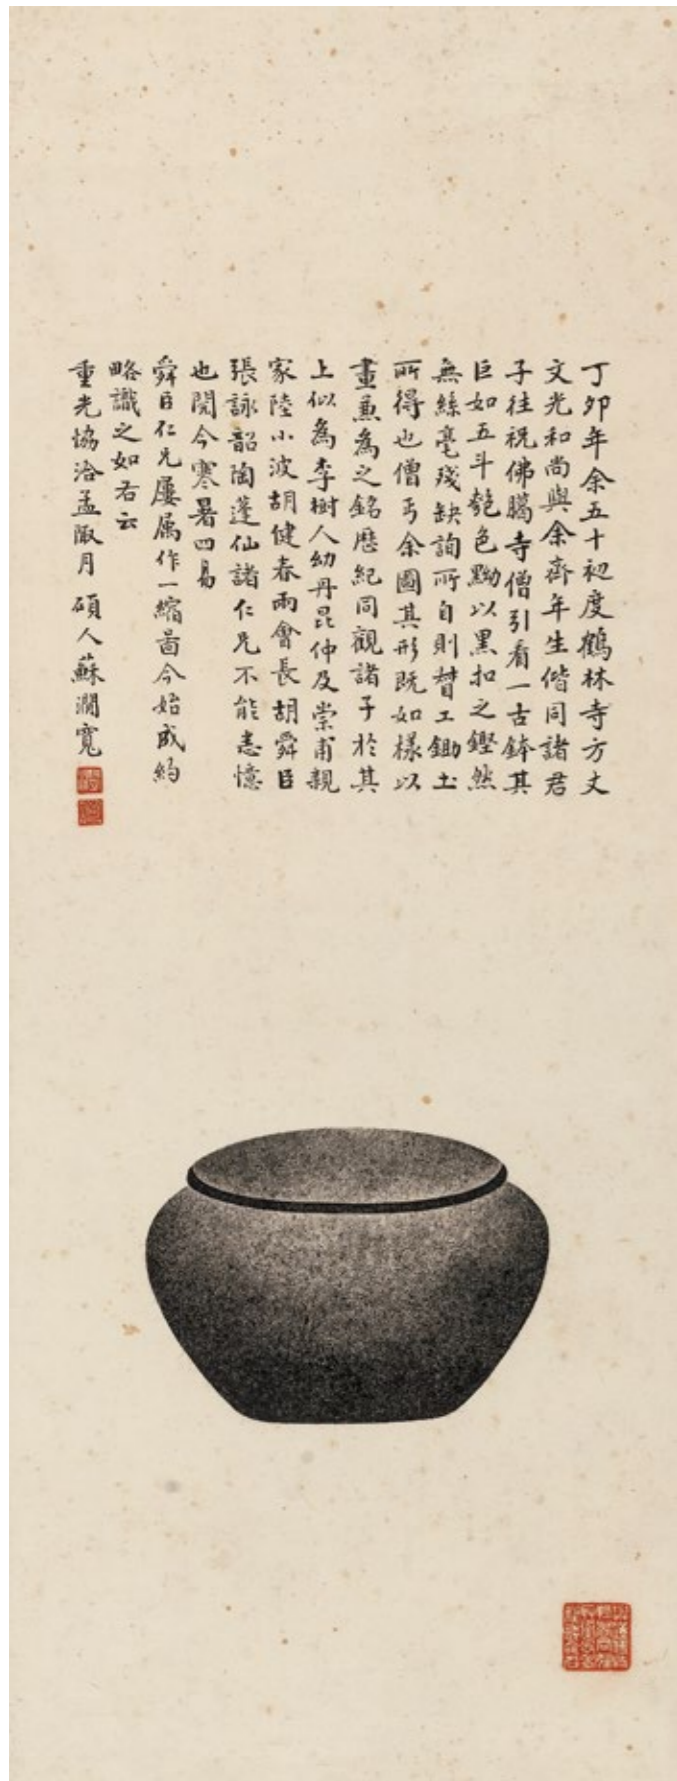 丁卯年余五十初度鶴林寺方丈
文光和尚與余齊年生偕同諸君
子往祝佛臈寺僧引看一古鉢其
巨如五斗瓠色黝以黑扣之鏗然
無絲毫殘缺詢所自則瞽工鋤土
所得也僧丐余圖其形既如樣以
畫兼為之銘歷紀同觀諸子於其
上似為李樹人幼丹昆仲及崇甫親
家陸小波胡健春兩會長胡舜臣
張詠韶陶蓬仙諸仁兄不能悉憶
也閱今寒暑四易
舜臣仁兄屢属作一縮啚今始成約
略識之如右云
重光協洽孟陬月 碩人蘇澗寬